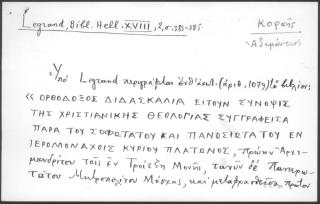 Legrand, Bibl. Hell. XVIII, 2, σ. 383-385.
Κοραῆς
Ἀδαμάντιος
Ὑπὸ Legrand περιγράφεται ἐνθ' ἀνωτ. (ἀριθ. 1079) τὸ βιβλίον:
« ΟΡΘΟΔΟΞΟΣ ΔΙΔΑΣΚΑΛΙΑ ΕΙΤΟΥΝ ΣΥΝΟΨΙΣ
ΤΗΣ ΧΡΙΣΤΙΑΝΙΚΗΣ ΘΕΟΛΟΓΙΑΣ ΣΥΓΓΡΑΦΕΙΣΑ
ΠΑΡΑ ΤΟΥ ΣΟΦΩΤΑΤΟΥ ΚΑΙ ΠΑΝΟΣΙΩΤΑΤΟΥ ΕΝ
ΙΕΡΟΜΟΝΑΧΟΙΣ ΚΥΡΙΟΥ ΠΛΑΤΩΝΟΣ, πρώην Ἀρχι-
μανδρίτου τῆς ἐν Τροΐτζη Μονῆς, τανῦν δὲ Πανιερω-
τάτου Μητροπολίτου Μόσχας, καὶ μεταφρασθεῖσα πρῶτον